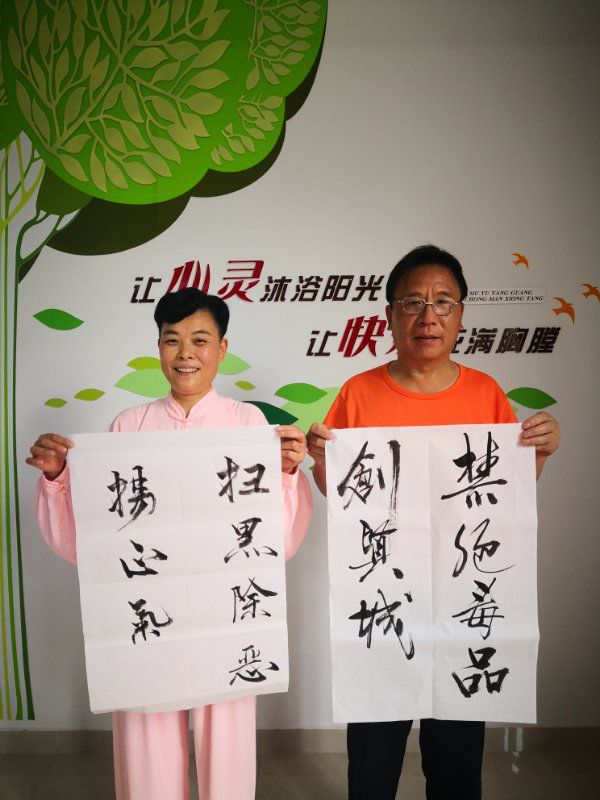 让心灵沐浴阳光
MU YU YANG GUANG
CHONG MAN XIONG TANG
让快 满胸膛
扫黑除恶
揚正氣
禁绝毒品
創 城